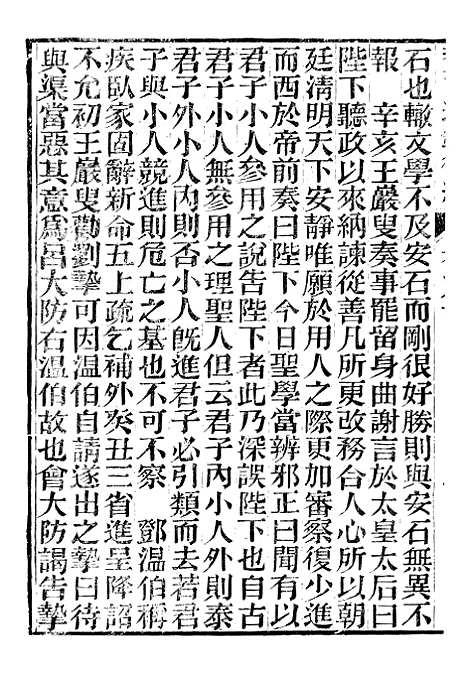 石也轍文學不及安石而剛很好勝則與安石無異不
報　辛亥王巖叟奏事罷留身曲謝言於太皇太后曰
陛下聽政以來納諫從善凡所更改務合人心所以朝
廷清明天下安靜唯願於用人之際更加審察復少進
而西於帝前奏曰陛下今日聖學當辨邪正曰聞有以
君子小人參用之說告陛下者此乃深誤陛下也自古
君子小人無參用之理聖人但云君子內小人外則泰
君子外小人內則否小人旣進君子必引類而去若君
子與小人競進則危亡之基也不可不察　鄧溫伯稱
疾臥家固辭新命五上疏乞補外癸丑三省進呈降詔
不允初王巖叟勸劉摯可因溫伯自請遂出之摯曰待
與渠當惡其意爲呂大防右溫伯故也會大防謁告摯